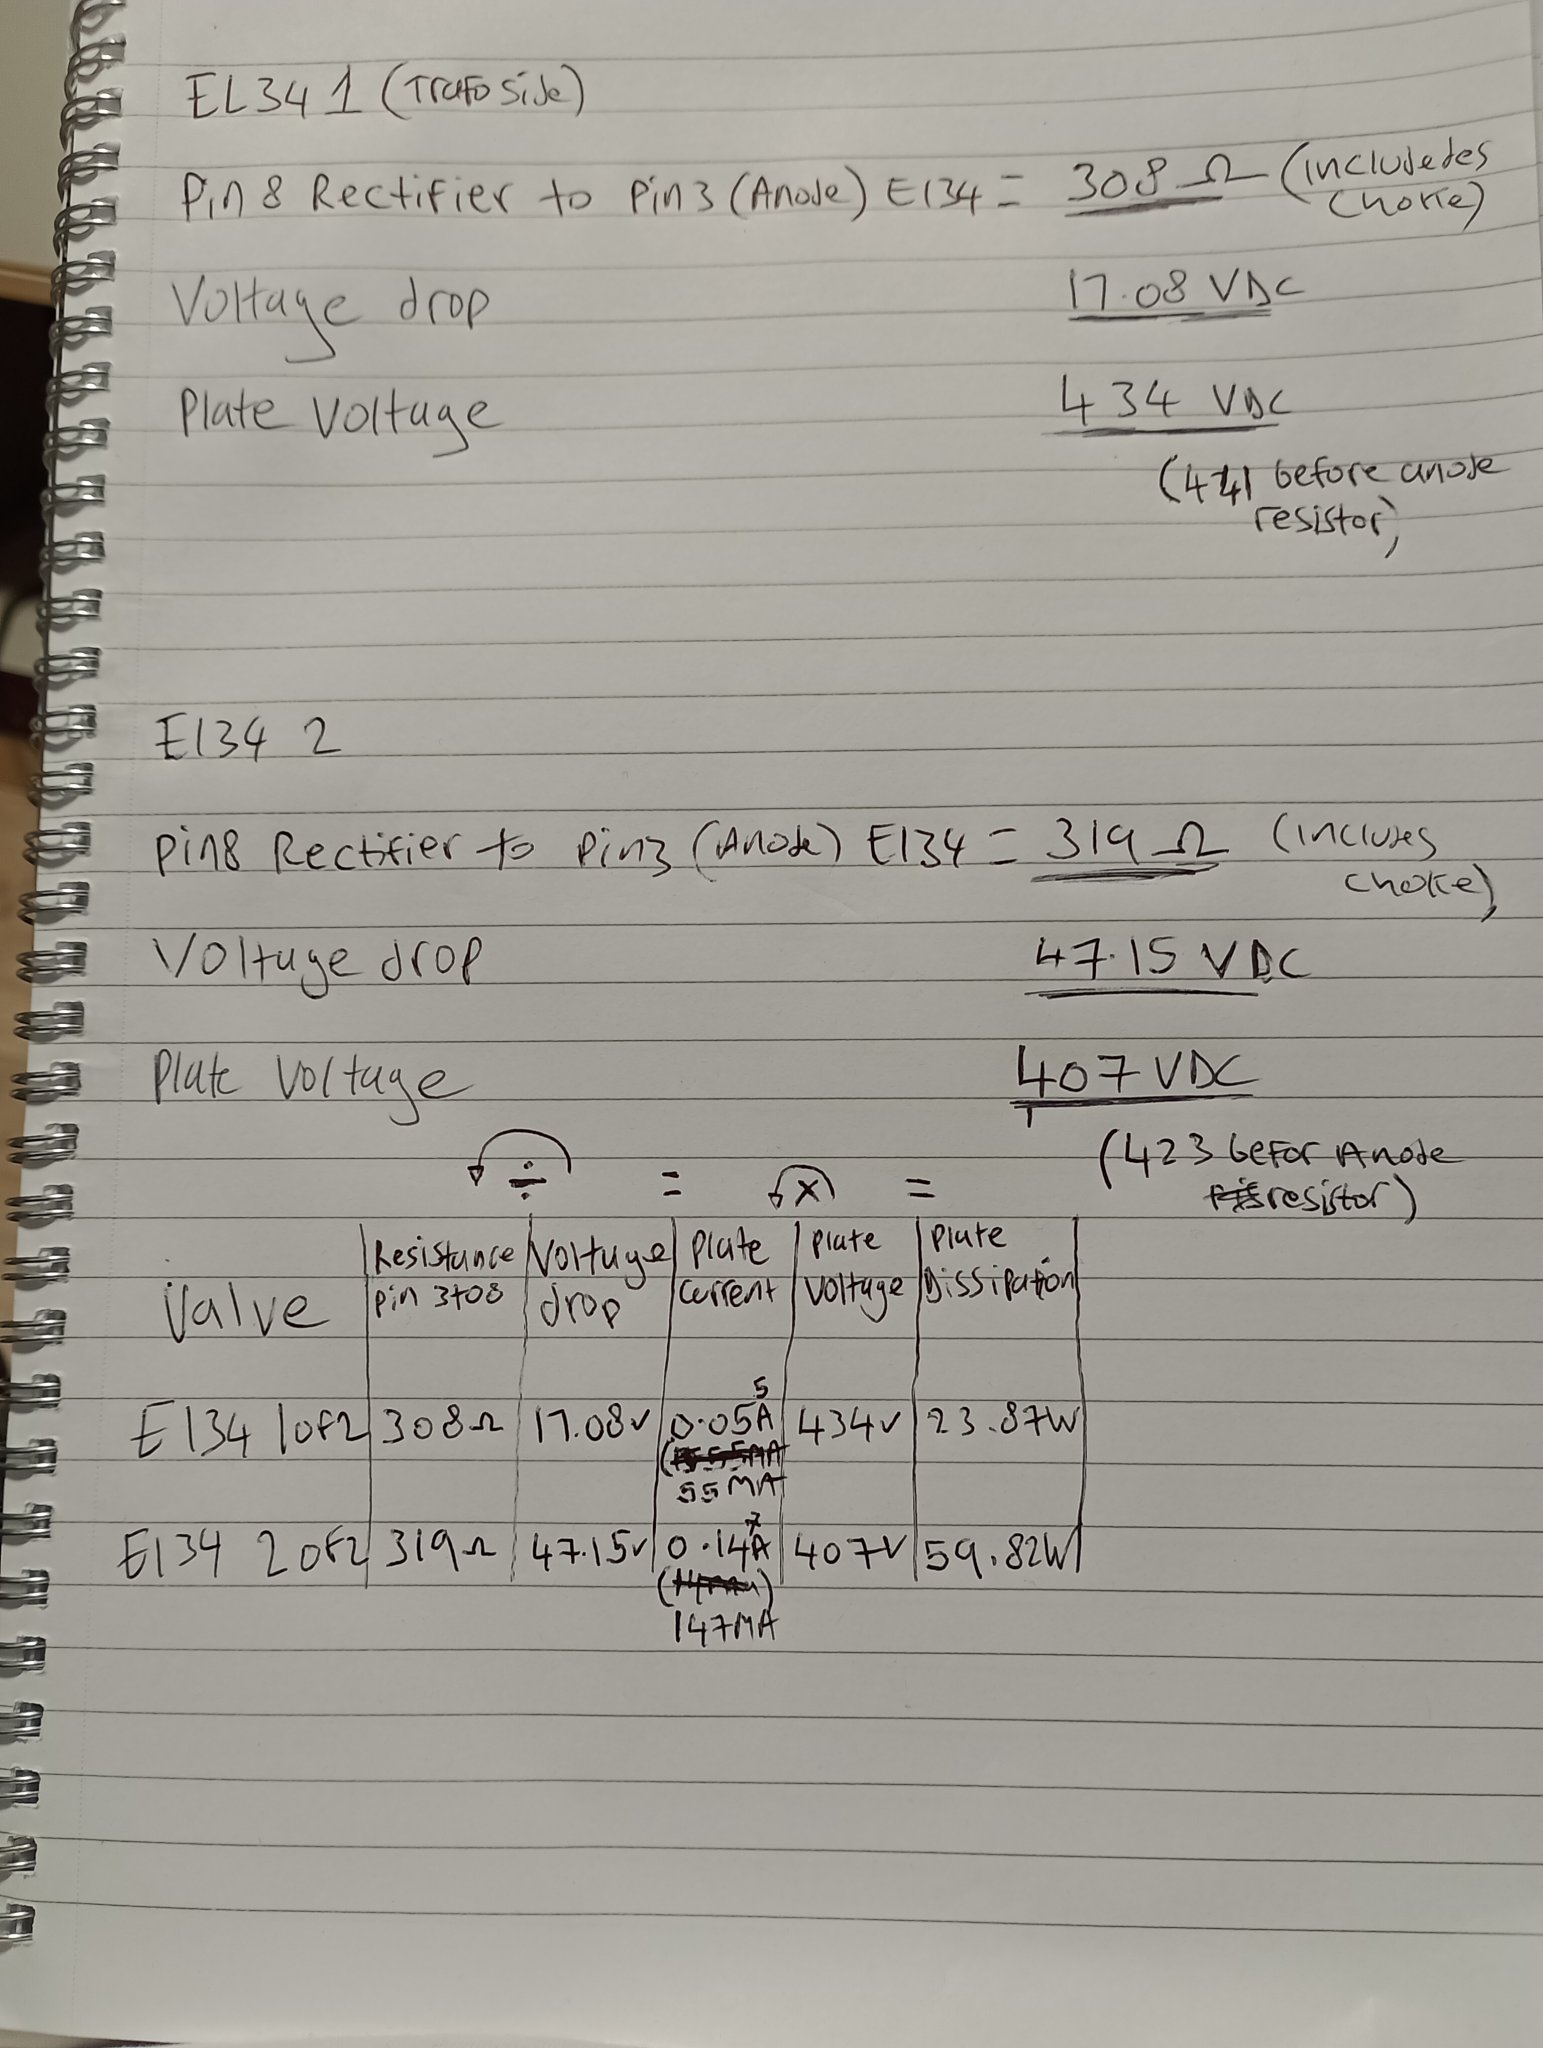 EL34 1 (Trafo Side)
Pin 8 Rectifier to Pin 3 (Anode) El34 = 308 Ω (includedes
choke)
Voltage drop 17.08 VDC
Plate Voltage 434 VDC
(441 before anode
resistor)
El34 2
Pin8 Rectifier to Pin3 (Anode) El34 = 319 Ω (includes
choke)
Voltage drop 47.15 VDC
Plate Voltage 407 VDC
(423 befor Anode
resistor)
÷ = × =
Valve Resistance Voltage Plate Plate Plate
pin 3to8 drop current Voltage Dissipation
El34 1of2 308Ω 17.08v 0.055A 434v 23.87W
55MA
El34 2of2 319Ω 47.15v 0.147A 407V 59.82W
147MA